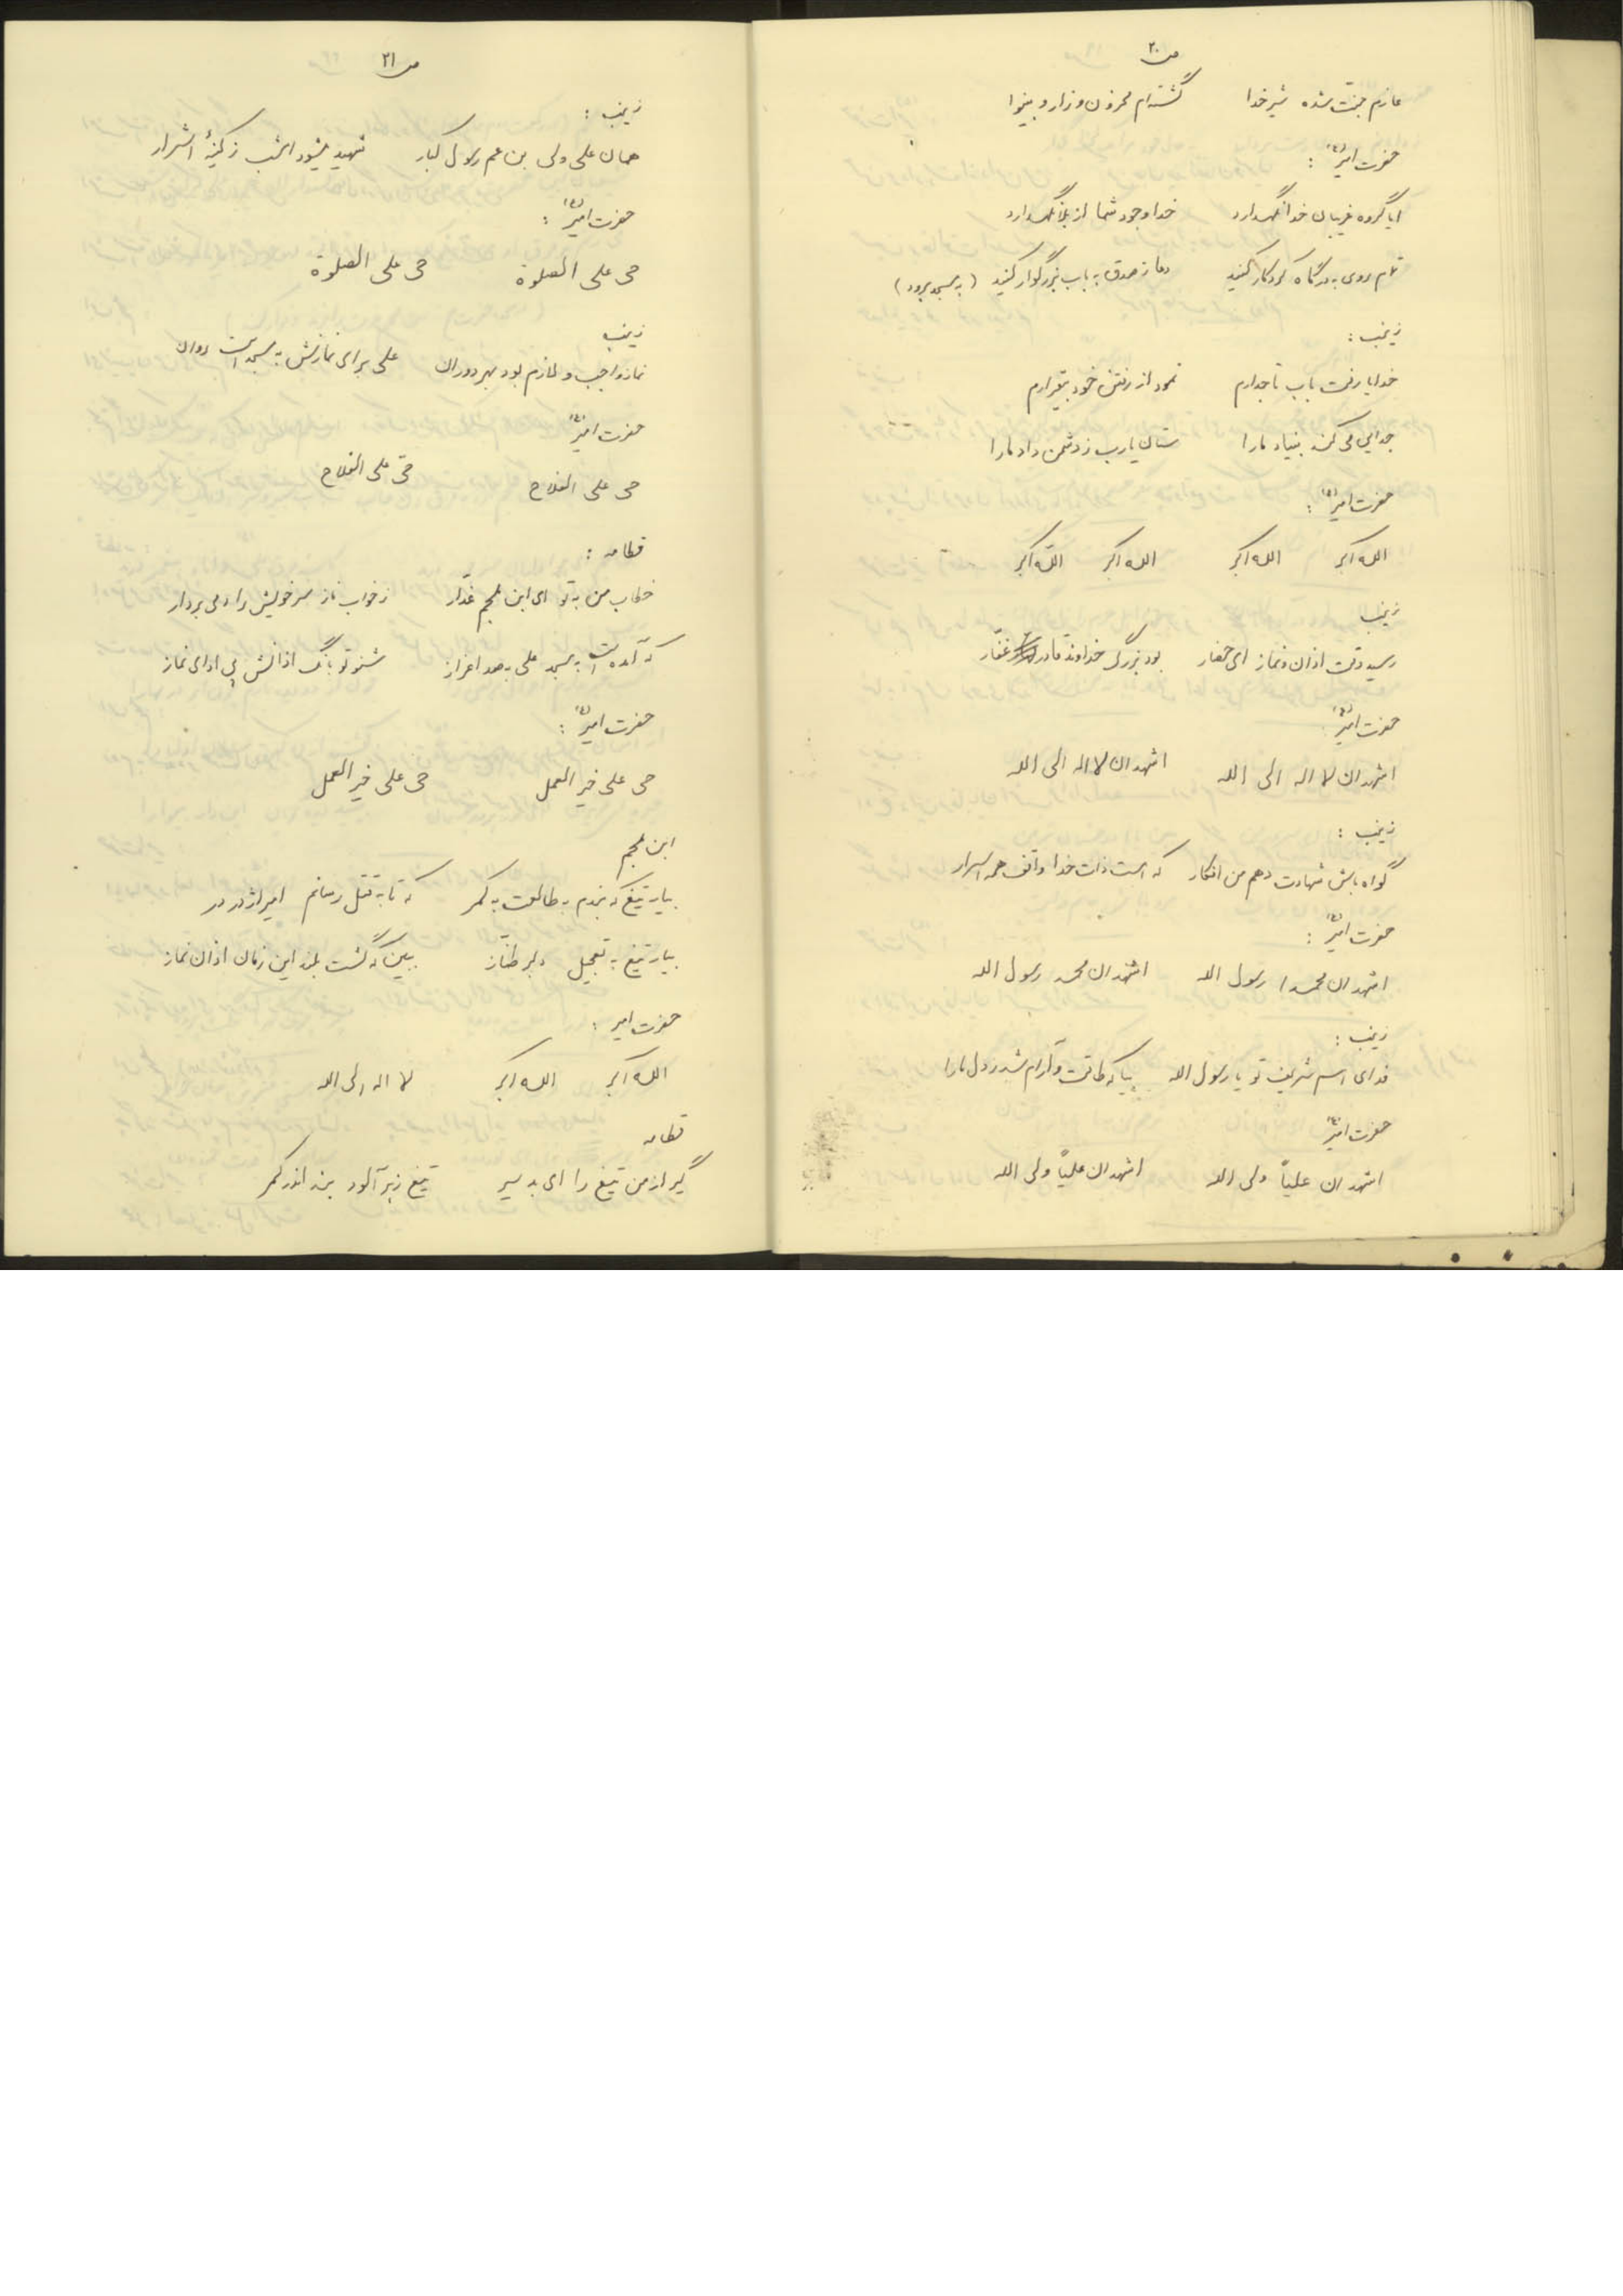 ص ۲۰
عازم جنّت شده شیر خدا گشته‌ام محزون و زار و بینوا
حضرت امیر (ع) :
ایا گروه غریبان خدا نگهدارد خدا وجود شما از بلا نگهدارد
تمام روی به درگاه کردگار کنید دعا ز صدق به باب بزرگوار کنید (به مسجد برود)
زینب :
خدایا رفت باب تاجدارم نمود از رفتن خود بیقرارم
جدایی می کند بنیاد ما را ستان یا رب ز دشمن داد ما را
حضرت امیر (ع) :
الله اکبر الله اکبر الله اکبر الله اکبر
زینب
رسید وقت اذان و نماز ای حضار بود بزرگ خداوند قادر غفّار
حضرت امیر (ع)
اشهد ان لا اله الی الله اشهد ان لا اله الی الله
زینب :
گواه باش شهادت دهم من افکار که هست ذات خدا واقف همه اسرار
حضرت امیر (ع) :
اشهد ان محمدا رسول الله اشهد ان محمد رسول الله
زینب :
فدای اسم شریف تو یا رسول الله بیا که طاقت و آرام شد ز دل ما را
حضرت امیر (ع)
اشهد ان علیاً ولی الله اشهد ان علیاً ولی الله
ص ۲۱
زینب :
همان علی ولی بن عم رسول کبار شهید میشود امشب ز کینهٔ اشرار
حضرت امیر (ع) :
حی علی الصلوة حی علی الصلوة
زینب
نماز واجب و لازم بود بهر دوران علی برای نمازش به مسجد است روان
حضرت امیر (ع)
حی علی الفلاح حیّ علی الفلاح
قطامه :
خطاب من به تو ای ابن ملجم غدّار ز خواب ناز سر خویش را دمی بردار
که آمده است به مسجد علی به صد اعزاز شنو تو بانگ اذانش پی ادای نماز
حضرت امیر (ع) :
حی علی خیر العمل حی علی خیر العمل
ابن ملجم
بیار تیغ که بندم به طالعت به کمر که تا به قتل رسانم امیر اژدر در
بیار تیغ به تعجیل دلبر طنّاز ببین که گشت بلند این زمان اذان نماز
حضرت امیر :
الله اکبر الله اکبر لا اله الی الله
قطامه
گیر از من تیغ را ای بد سیر تیغ زهر آلود بند اندر کمر